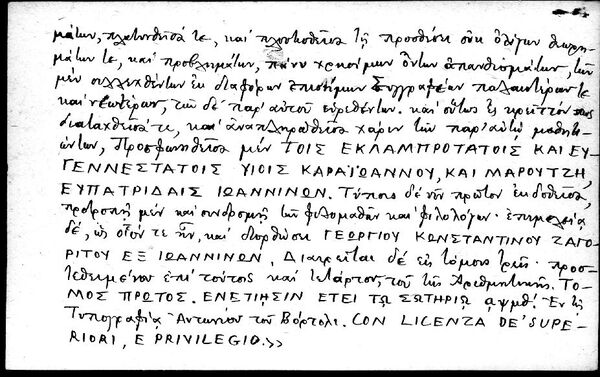 μάτων, πλατυνθεῖσά τε, καὶ πλουτισθεῖσα τῇ προσθέσει οὐκ ὀλίγων θεωρη-
μάτων τε, καὶ προβλημάτων, πάνυ χρησίμων ὄντων ἀπανθισμάτων, τῶν
μὲν συλλεχθέντων ἐκ διαφόρων ἐπισήμων Συγγραφέων παλαιοτέρων τε
καὶ νεωτέρων, τῶν δὲ παρ' αὐτοῦ εὑρεθέντων. καὶ οὕτως εἰς κρεῖττον
διαταχθεῖσά τε, καὶ ἀναπληρωθεῖσα χάριν τῶν παρ' αὐτῷ μαθητευ-
όντων, Προσφωνηθεῖσα μὲν ΤΟΙΣ ΕΚΛΑΜΠΡΟΤΑΤΟΙΣ ΚΑΙ ΕΥ-
ΓΕΝΝΕΣΤΑΤΟΙΣ ΥΙΟΙΣ ΚΑΡΑΪΩΑΝΝΟΥ, ΚΑΙ ΜΑΡΟΥΤΖΗ,
ΕΥΠΑΤΡΙΔΑΙΣ ΙΩΑΝΝΙΝΩΝ. Τύποις δὲ νῦν πρῶτον ἐκδοθεῖσα,
προτροπῇ μὲν καὶ συνδρομῇ τῶν φιλομαθῶν καὶ φιλολόγων· ἐπιμελείᾳ
δὲ, ὡς οἷόν τε ἦν, καὶ διορθώσει ΓΕΩΡΓΙΟΥ ΚΩΝΣΤΑΝΤΙΝΟΥ ΖΑΓΟ-
ΡΙΤΟΥ ΕΞ ΙΩΑΝΝΙΝΩΝ. Διαιρεῖται δὲ εἰς τόμους τρεῖς· προσ-
τεθειμένου ἐπὶ τούτοις καὶ τετάρτου τοῦ τῆς Ἀριθμητικῆς. ΤΟ-
ΜΟΣ ΠΡΩΤΟΣ. ΕΝΕΤΙΗΣΙΝ ΕΤΕΙ ΤΩ ΣΩΤΗΡΙΩ αψμθ'. Ἐν τῇ
Τυπογραφίᾳ Ἀντωνίου τοῦ Βόρτολι. CON LICENZA DE' SUPE-
RIORI, E PRIVILEGIO.>>